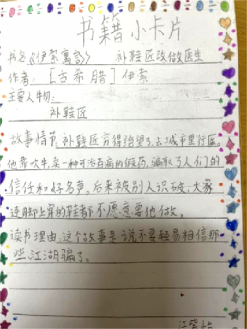 书籍小卡片
书名《伊索寓言》 补鞋匠改做医生
作者:[古希腊]伊索
主要人物:
补鞋匠
故事情节,补鞋匠穷得绝望了,去城市里行医,
他靠吹牛,卖一种可治百病的假药,骗取了人们的
信任和好名声,后来被别人识破,大家
连脚上穿的鞋都不愿意要他做。
读书理由,这个故事是说不要轻易相信那
些江湖骗了。